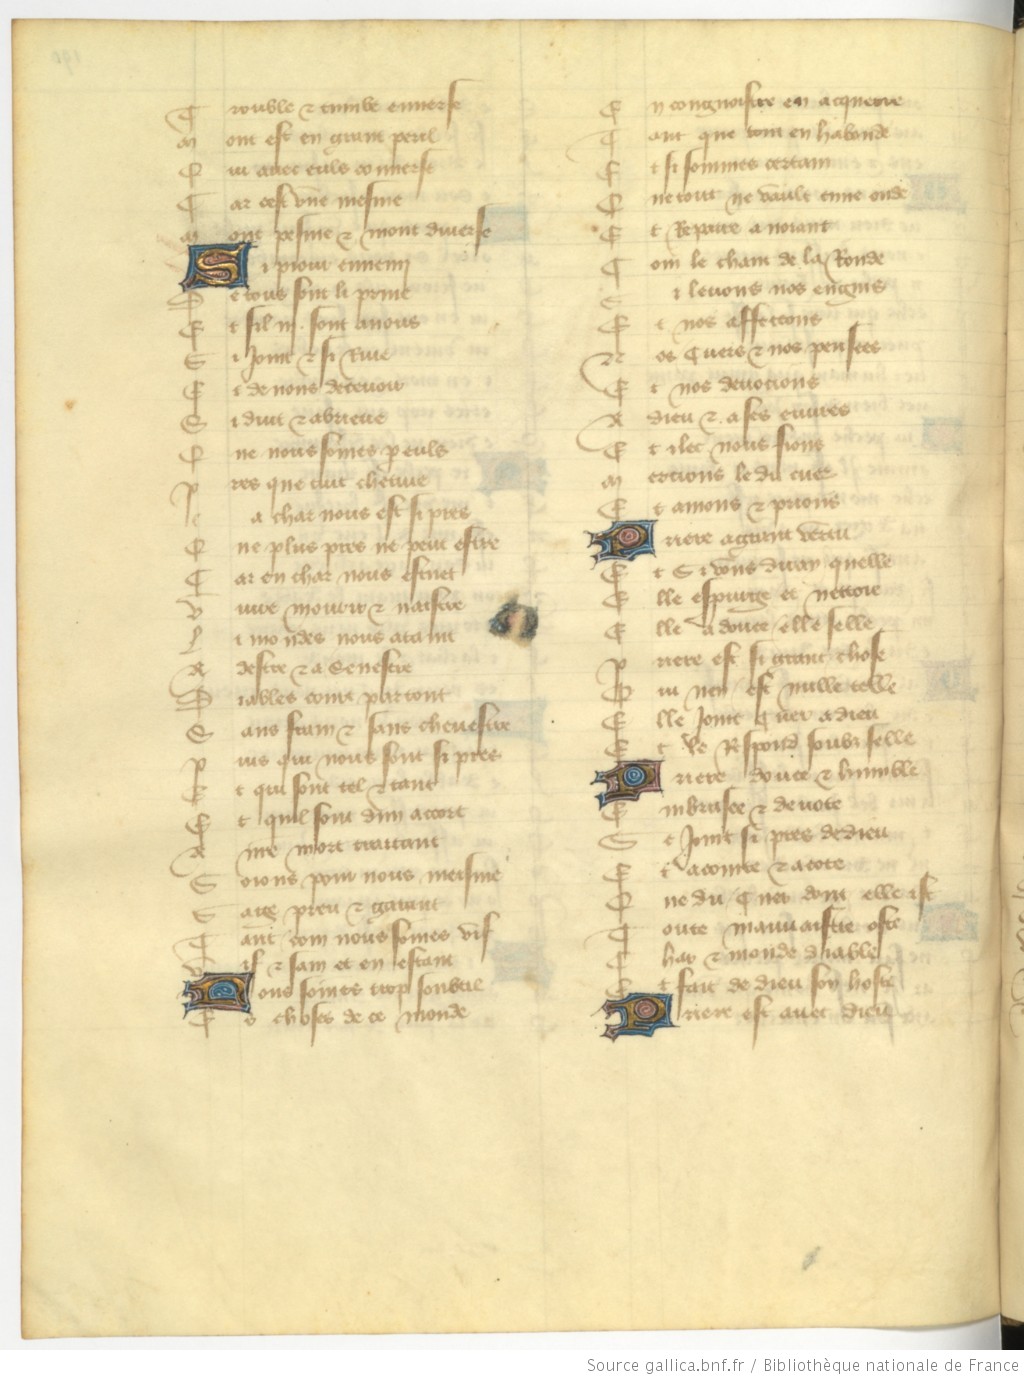 Trouble et tumbe enverse
Mout est en grant peril
Qui avec euls converse
Car cest une mesme
Mout pesme et mout diverse
Si prout ennemi
De tous sont li prime
Et sil m. sont a nous
Si joint et si rive
Et de nous decevoir
Si duit et abrieve
Que nous somes peuls
Pres que tuit chetive
Le a char nous est si pres
Que plus pres ne peut estre
Car en char nous estuet
Vivre mourir et naistre
Li mondes nous atant
A destre et a senestre
Diables court partout
Sans frain et sans chevestre
Puis qui nous sont si pres
Et qui sont tel et tant
Et quil sont dun accort
A me mort traitant
Soions pour nous meisme
Saige preu et garant
Tant com nous somes vif
Vif et sain et en estant
Nous somes trop soubtil
Es choses de ce monde
En congnoistre en acquerre
Tant que tout en habonde
Et si sommes certain
Que tout ne vault une onde
Et Repaire a noiant
Com le chant de la Ronde
Si levons nos engins
Et nos affeccons
Nos Cuers et nos pensees
Et nos devocions
A dieu et a ses euvres
Et ilec nous sions
Mercions le du cuer
Et amons et prions
Priere a grant vertu
Et Si vous diray quelle
Elle espurge et nettoie
Elle a douce elle selle
Priere est si grant chose
Qui nen est nulle telle
Elle Joint Cuer a dieu
Et le Respond soubz selle
Priere douce et humble
Embrasee et devote
Et Joint si pres de dieu
Et acointe et acote
Que du Cuer dont elle ist
Toute mauvaistie oste
Char et monde diable
Et fait de dieu son hoste
Priere est avec dieu